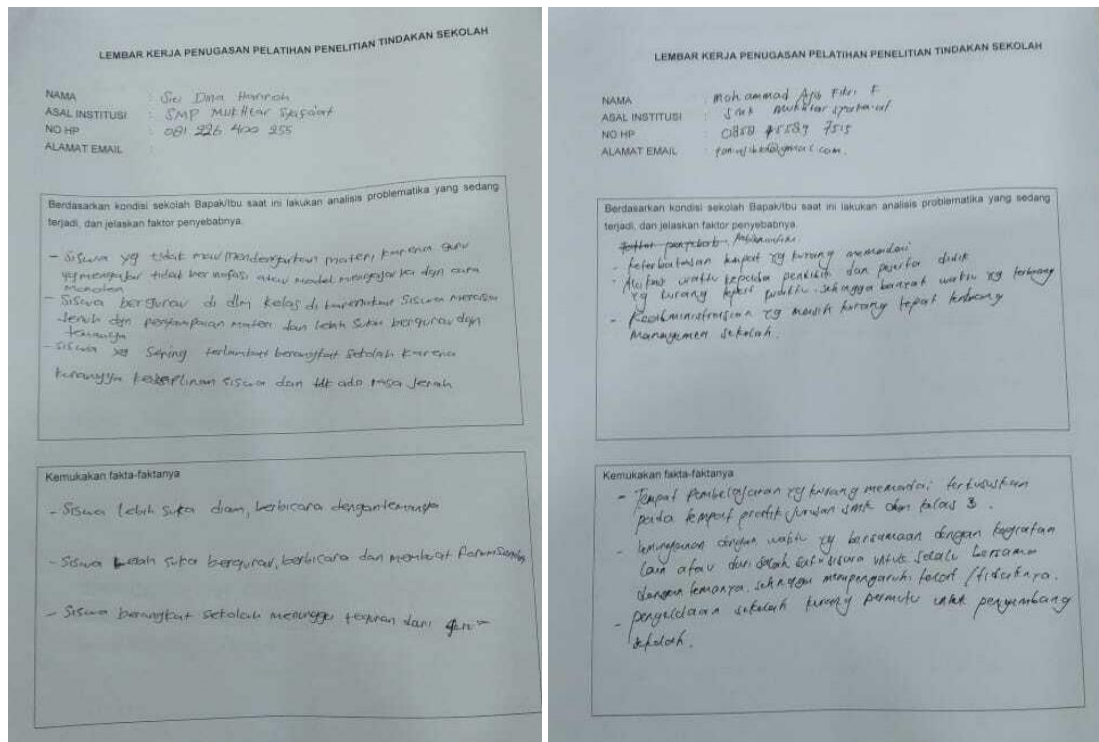 LEMBAR KERJA PENUGASAN PELATIHAN PENELITIAN TINDAKAN SEKOLAH
NAMA : Sri Dina Hannah
ASAL INSTITUSI : SMP Mukhtar Syafa'at
NO HP : 081 226 400 255
ALAMAT EMAIL :
Berdasarkan kondisi sekolah Bapak/Ibu saat ini lakukan analisis problematika yang sedang
terjadi, dan jelaskan faktor penyebabnya
- Siswa yg tidak mau mendengarkan materi karena guru
yg mengajar tidak ber atau model mengajar dgn cara
monoton
- Siswa bergurau di dlm kelas di karenakan siswa merasa
Jenuh dgn penyampaian materi dan lebih suka bergurau dgn
temannya
- Siswa yg sering terlambat berangkat sekolah karena
kurangnya siswa dan tdk ada rasa Jerah
Kemukakan fakta-faktanya
- Siswa lebih suka diam, berbicara dengan temannya
- Siswa lebih suka bergurau, berbicara dan membuat forum sendiri
- Siswa berangkat sekolah menunggu teguran dari guru
LEMBAR KERJA PENUGASAN PELATIHAN PENELITIAN TINDAKAN SEKOLAH
NAMA : Mohammad Fitri F
ASAL INSTITUSI : Smk Mukhtar
NO HP : 7515
ALAMAT EMAIL : @gmail.com.
Berdasarkan kondisi sekolah Bapak/Ibu saat ini lakukan analisis problematika yang sedang
terjadi, dan jelaskan faktor penyebabnya
- Keterbatasan tempat yg kurang memadai
- waktu kepada pendidik dan peserta didik
yg kurang sehingga banyak waktu yg terbuang
- Keadministrasian yg masih kurang tepat tentang
Manajemen sekolah.
Kemukakan fakta-faktanya
- Tempat Pembelajaran yg kurang memadai terkususkan
pada tempat praktik jurusan smk dan kelas 3.
- dengan waktu yg bersamaan dengan kegiatan
lain atau dari salah satu siswa untuk selalu bersama
dengan temanya. sehingga mempengaruhi
- pengelolaan sekolah kurang untuk
sekolah.